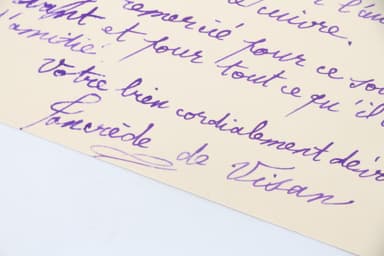 l'am
suivre.
remercié pour ce sou
et pour tout ce qu'il
l'amitié.
Votre bien cordialement dév
Tancrède de Visan